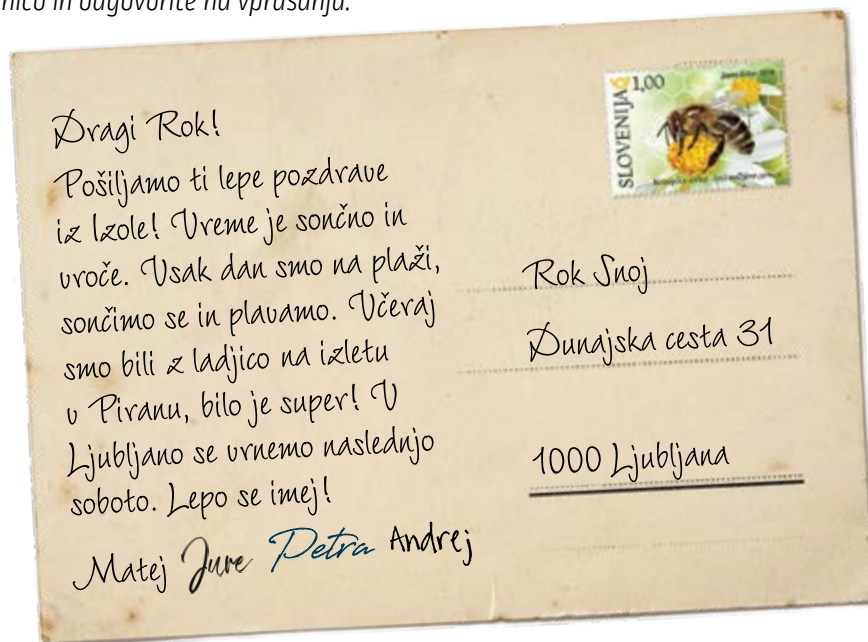 in odgovorite na vprašanja.
Dragi Rok!
Pošiljamo ti lepe pozdrave
iz Izole! Vreme je sončno in
vroče. Vsak dan smo na plaži,
sončimo se in plavamo. Včeraj
smo bili z ladjico na izletu
v Piranu, bilo je super! V
Ljubljano se vrnemo naslednjo
soboto. Lepo se imej!
Matej Jure Petra Andrej
SLOVENIJA
1,00
Rok Snoj
Dunajska cesta 31
1000 Ljubljana